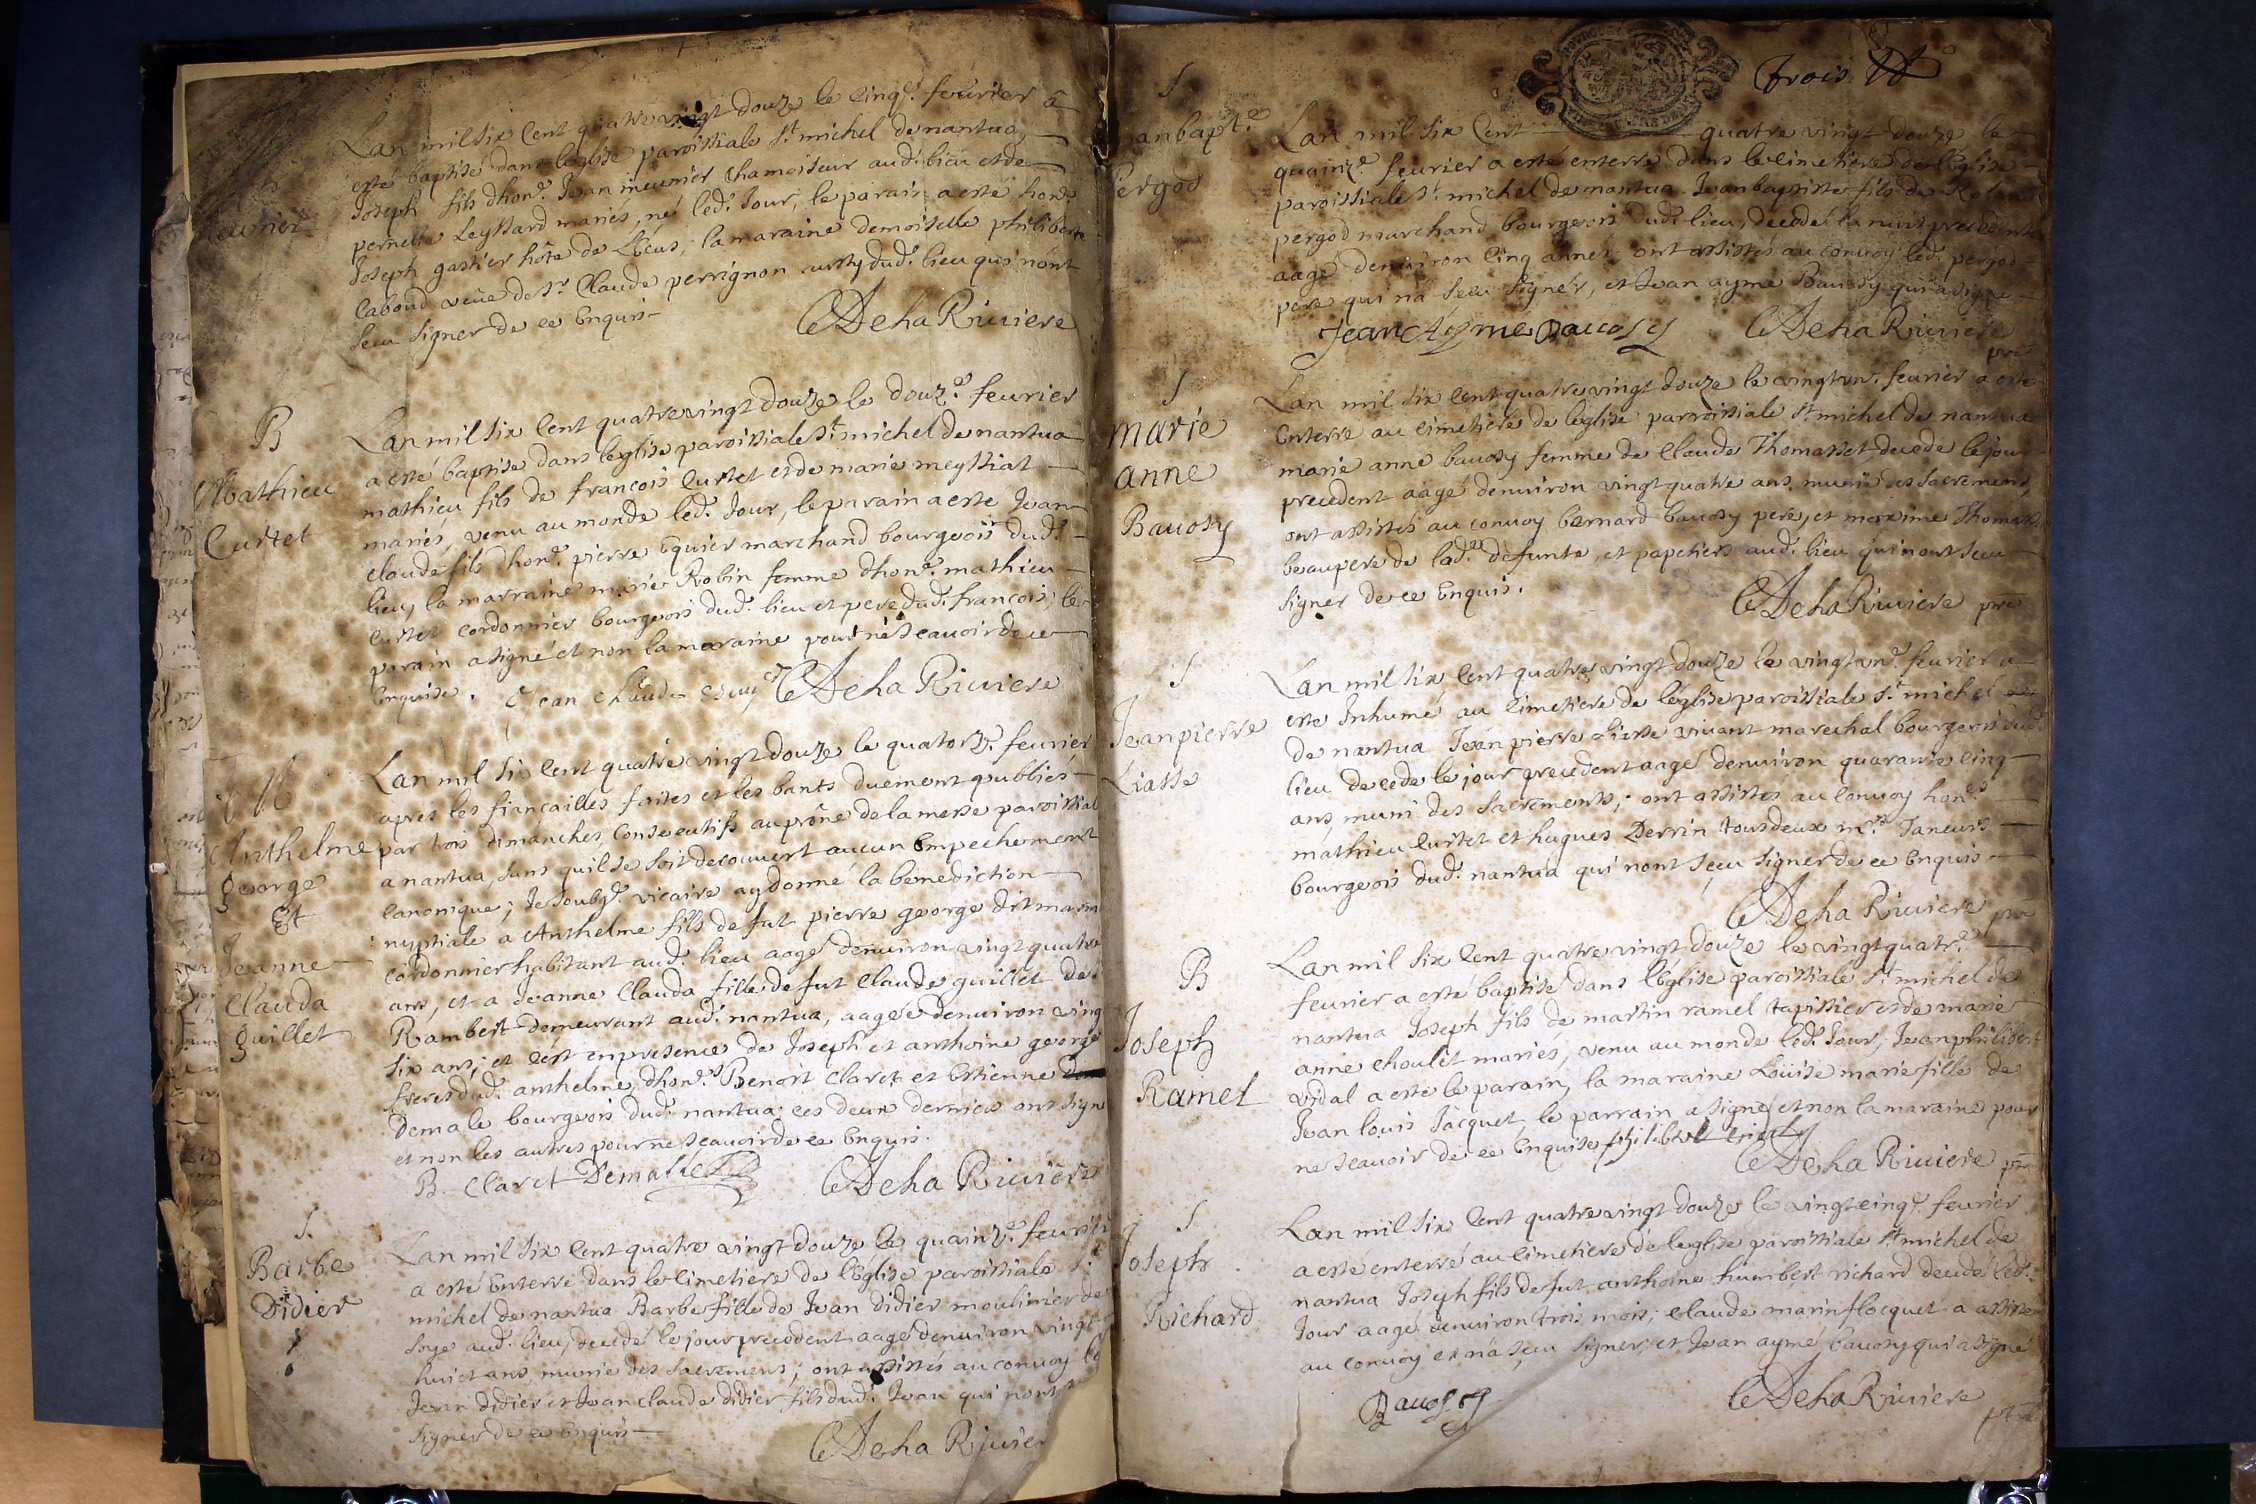 Lan mil six Cent quatre vingt douze le Cinq.e feurier a
esté baptisé dans leglise paroissiale s.t michel de nantua
Joseph fils dhon.e Jean meunier Chamoiseur aud. lieu et de
pernette Leyssard mariés, né led. Jour, le parain a esté hon.e
Joseph gastier hôte de L'Ecus, la maraine demoiselle philiberte
Caboud veüe de s.r Claude perrignon dud. lieu qui n'ont
sceu signer de ce Enquis
DelaRiuiere
B
Mathieu
Curtet
Lan mil six Cent quatre vingt douze le douz.e feurier
a esté baptise dans leglise paroissiale s.t michel de nantua
mathieu fils de francois Curtet et de marie meyssiat
mariés, venu au monde led. Jour, le parain a esté Jean
claude fils dhon.e pierre Equier marchand bourgeois dud.
lieu, la marraine marie Robin femme dhon.e mathieu
Curtet cordonnier bourgeois dud. lieu et pere dud. francois; le
parain a signé et non la maraine pour ne scauoir de ce
Enquise. Jean Claude DelaRiuiere
M
Anthelme
george
Et
Jeanne
Clauda
guillet
Lan mil six Cent quatre vingt douze le quatorz.e feurier
apres les fiançailles faites et les bants duement publiés
par trois dimanches Consecutifs au prône de la messe paroissial
a nantua, sans quil se soit decouuert aucun Empechement
canonique; Je soubs.e vicaire ay donné la benediction
nuptiale a Anthelme fils de fut pierre george dit marin
cordonnier habitant aud. lieu aagé denuiron vingt quatre
ans, et a Jeanne Clauda fille de fut Claude guillet de
Rambert demeurant aud. nantua, aagée denuiron ving
six ans; et c'est en presence de Joseph et anthoine george
freres dud. anthelme, dhon.s Benoit Claret et Estienne
Demale bourgeois dud. nantua ces deux derniers ont signé
et non les autres pour ne scauoir de ce Enquis.
B. Claret Demalle DelaRiuiere
S.
Barbe
Didier
Lan mil six Cent quatre vingt douze le quainz.e feurier
a esté Enterré dans le cimetiere de l'Eglise paroissiale s.t
michel de nantua Barbe fille de Jean Didier moulinier de
soye aud. lieu, decedé le jour precedent aagé denuiron vingt
huict ans munie des sacremens; ont assistés au conuoy le
Jean Didier et Jean claude didier fils dud. Jean qui nont
signer de ce Enquis
DelaRiuiere
Trois
S
Jeanbapt.e
Pergod
Lan mil six Cent quatre vingt douze le
quainz.e feurier a esté enterré dans le cimetiere de l'Eglise
paroissiale s.t michel de nantua Jean baptiste fils de
pergod marchand bourgeois dud. lieu, decedé la nuit precedente
aagé denuiron cinq années, ont assistés au conuoy led. pergod
pere qui na sceu signer, et Jean aymé Bauosy qui a signé
Jean Ayme Bauosy DelaRiuiere
pre
S
marie
anne
Bauosy
Lan mil six Cent quatre vingt douze le vingt vn.e feurier a esté
Enterré au cimetiere de leglise parroissiale s.t michel de nantua
marie anne bauosy femme de Claude Thomasset decede le jour
precedent aagé denuiron vingt quatre ans munie des sacremens,
ont assistés au conuoy bernard bauosy pere, et maxime Thomass
beaupere de lad. defunte, et papetiers aud. lieu qui nont sceu
signer de ce Enquis.
DelaRiuiere pre
S
Jeanpierre
Liasse
Lan mil six Cent quatre vingt douze le vingt vn.e feurier a
esté Inhumé au cimetiere de léglise paroissiale s.t michel
de nantua Jean pierre Liasse viuant marechal bourgeois dud.
lieu decede le jour precedent aagé denuiron quarante cinq
ans, muni des sacremens; ont assistés au conuoy hon.s
mathieu Curtet et hugues Perrin tous deux m.es Taneurs
bourgeois dud. nantua qui nont sçeu signer de ce Enquis
DelaRiuiere pre
B
Joseph
Ramel
Lan mil six Cent quatre vingt douze le vingt quatr.e
feurier a esté baptisé dans l'Eglise paroissiale s.t michel de
nantua Joseph fils de martin ramel tapissier et de marie
anne Choulet mariés, venu au monde led. Jour; Jean philibert
vidal a esté le parain, la maraine Loüise marie fille de
Jean louis Jacquet, le parrain a signé et non la maraine pour
ne scauoir de ce Enquise philibert
DelaRiuiere pre
S
Joseph
Richard
Lan mil six Cent quatre vingt douze le vingt cinq.e feurier
a esté enterré au cimetiere de leglise paroissiale s.t michel de
nantua Joseph fils de fut anthoine humbert richard decedé led.
Jour aagé denuiron trois mois; claude marin flocquet a assisté
au conuoy et na sçeu signer, et Jean aymé bauosy qui a signé
Bauosy DelaRiuiere
pre